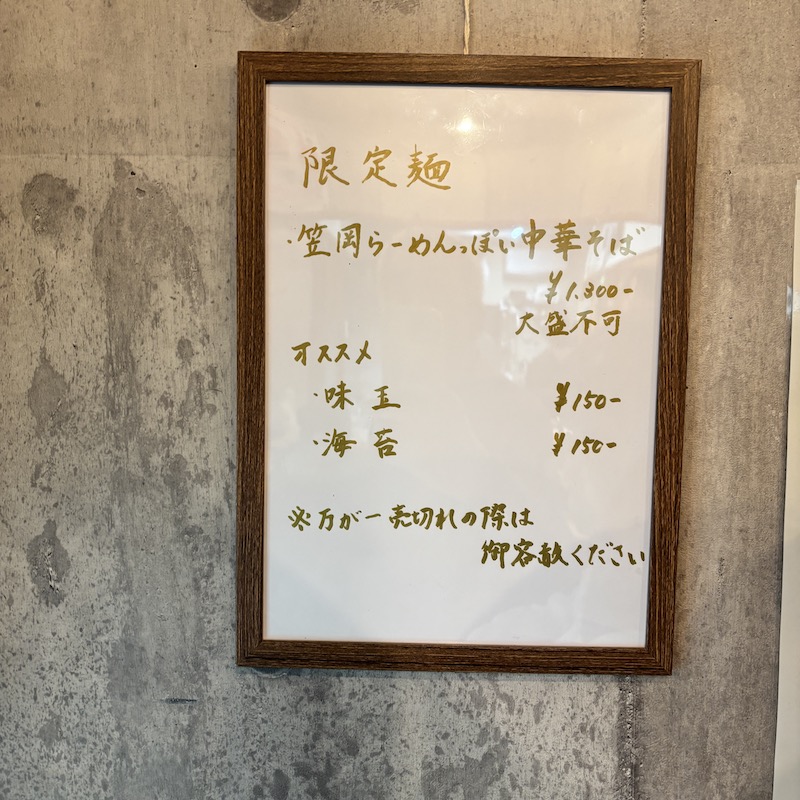 限定麺
・笠岡らーめんっぽい中華そば
¥1.300-
大盛不可
オススメ
・味玉 ¥150-
・海苔 ¥150-
※万が一売切れの際は
御容赦ください